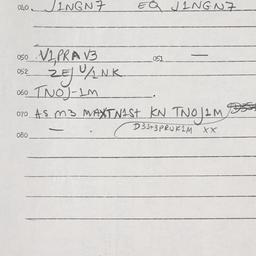 010. J1NGN7 EQ J1NGN7
050 V1PRAV3 051 —
052 ZEJU/1NK
060 TNOJ-1M .
070 AS M3 MAXTN1ST KN TNOJ1M
080 — . D3J+3PRUK1M XX